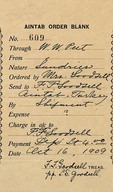 AINTAB ORDER BLANK
No. 609
Through W. W. Peet
From
Nature Sundries
Ordered by Mrs. Goodsell
Send to F. F. Goodsell
Aintab, Turkey
By Shipment
Expense
Charge in a/c to
F. F. Goodsell
Payment
Date Oct. 16 1909
F. F. Goodsell TREAS.
Goodsell